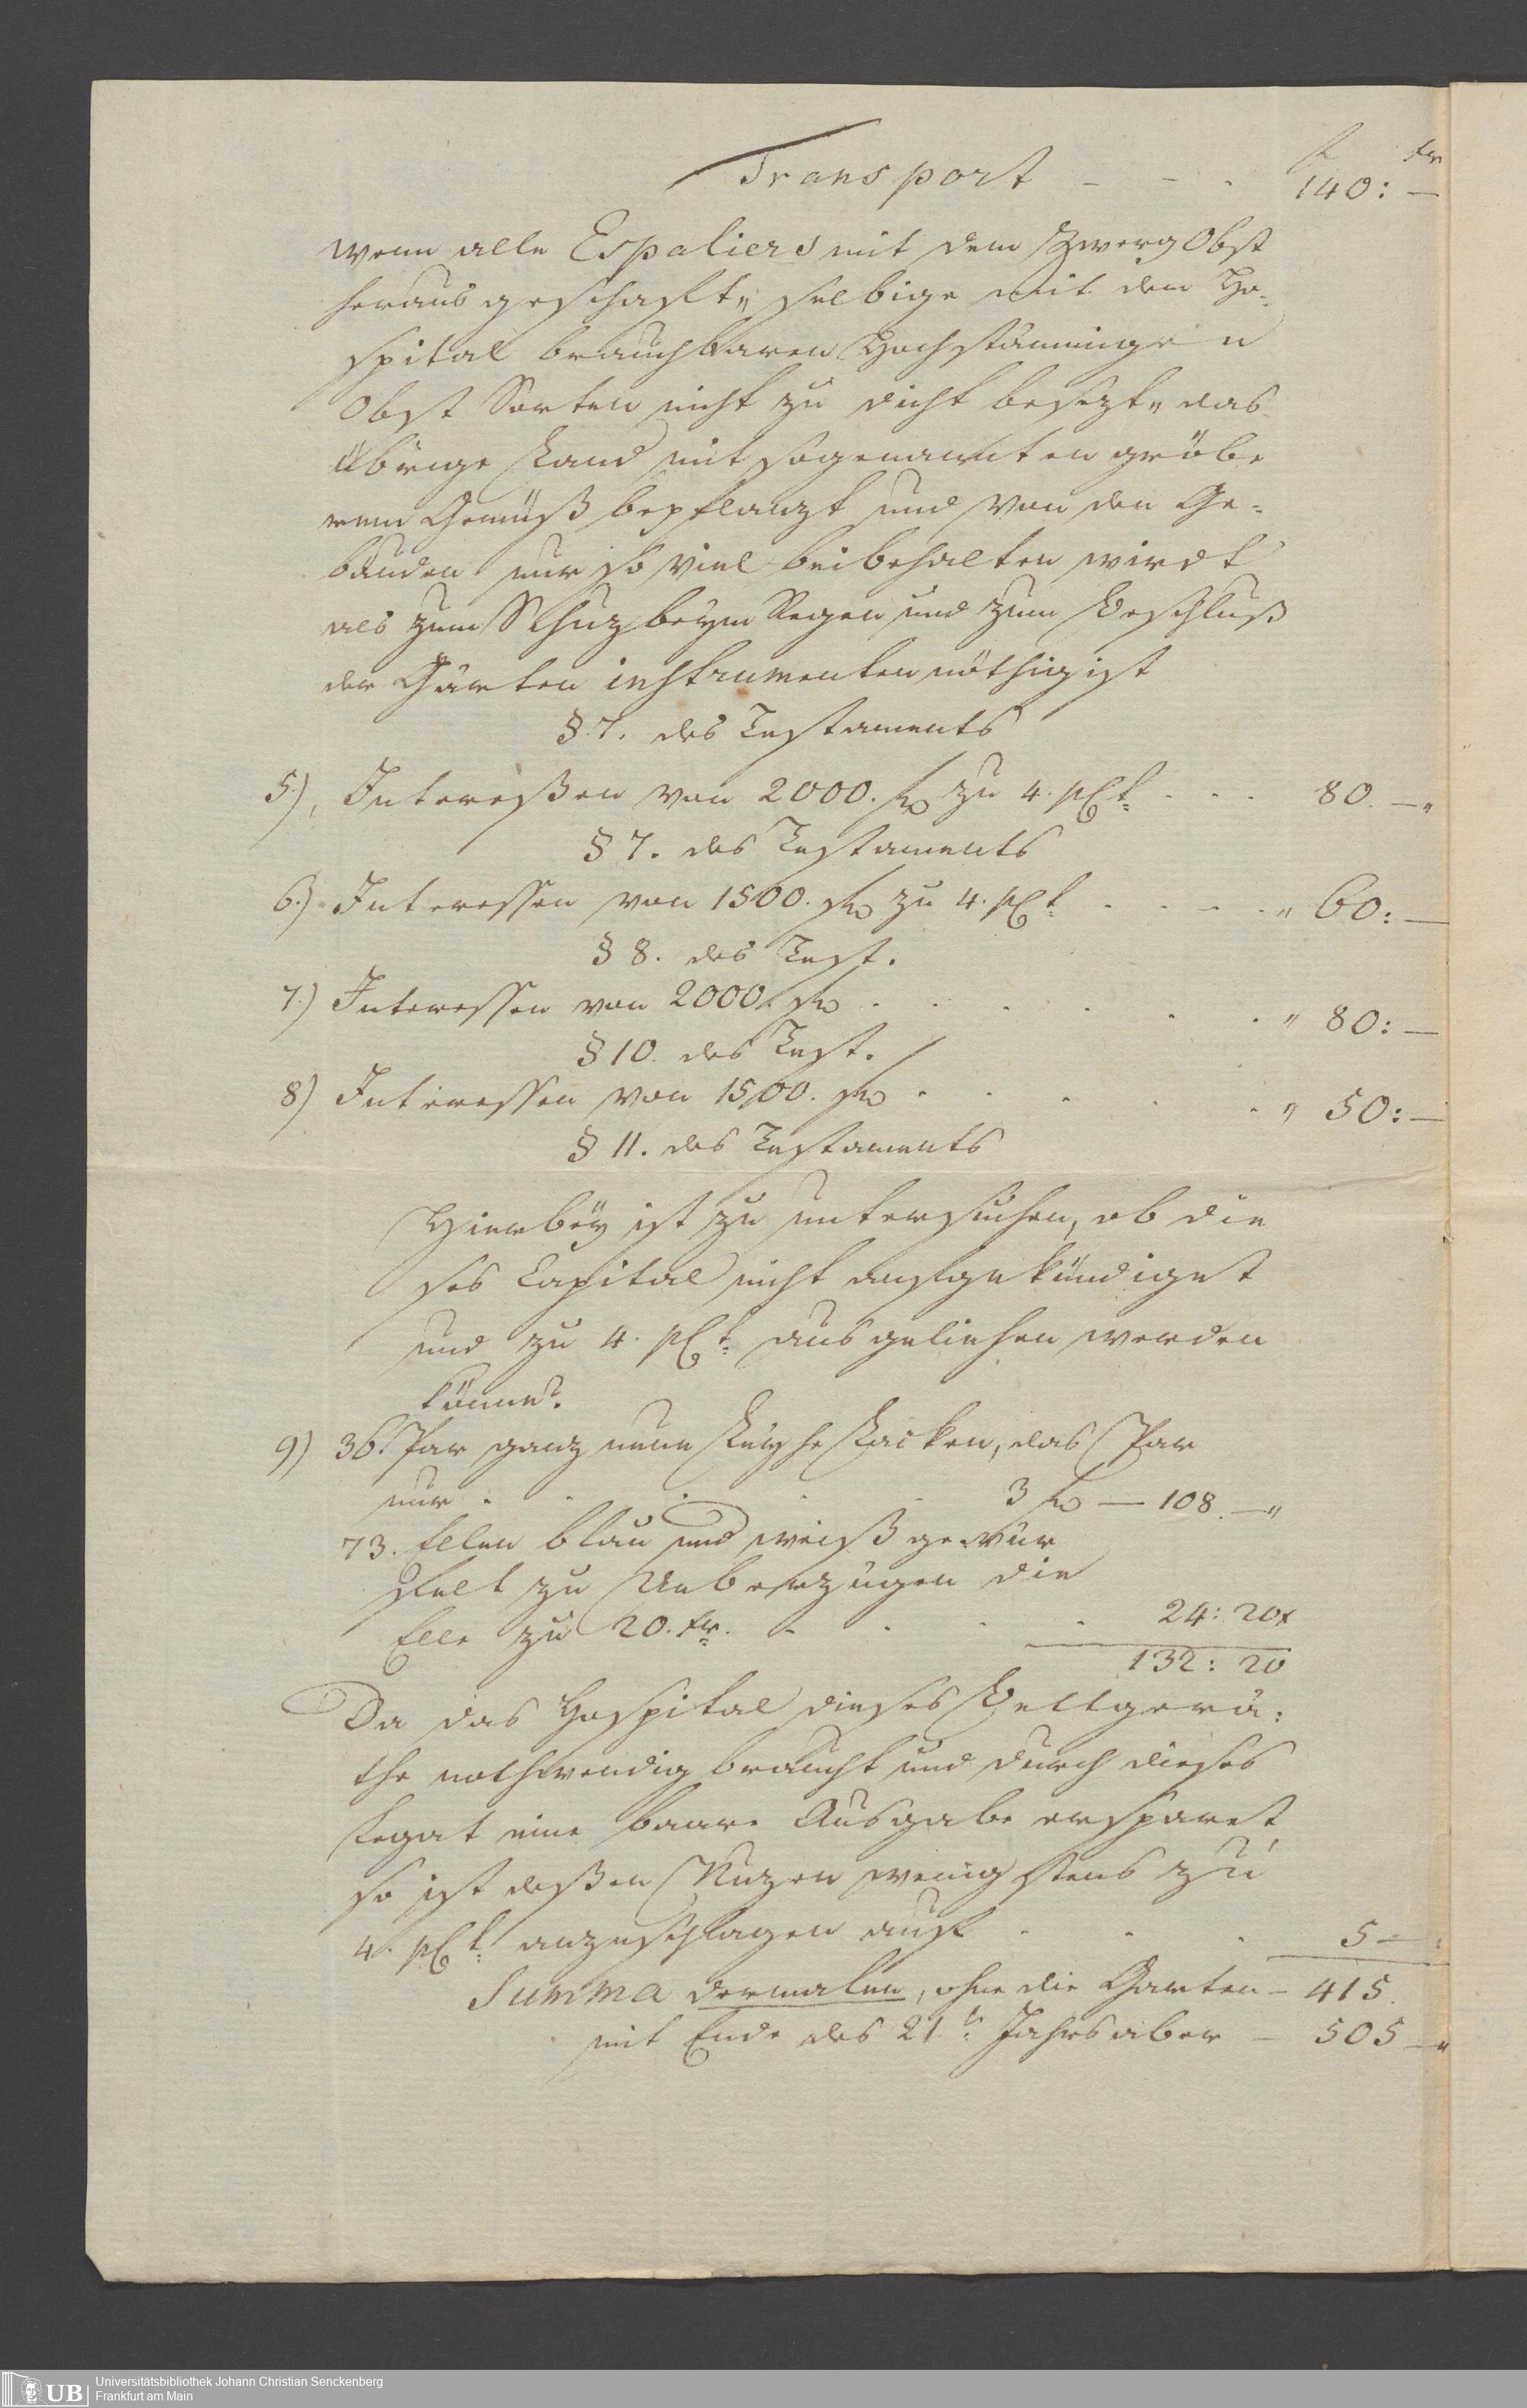 f xr
Transport - - - 140: —
wenn alle Espaliers mit dem Zwerg Obst
heraus geschafft, selbige mit dem Ho-
spital brauchbaren Hochstämmigen
Obst Sorten nicht zu dicht besezt, das
übrige Land mit sogenannten gröbe
rem Gemüß bepflanzt und von den Ge-
bäuden nur so viel beibehalten wirdt
als zum Schuz beym Regen und zum Beschluß
der Gärten instrumenten nöthig ist
§. 7. des Testaments
5.) Intereßen von 2000. f zu 4. pCt. - - - 80. —"
§ 7. des Testaments
6.) Interessen von 1500. f zu 4. pCt. - - - - " 60: —
§ 8. des Test.
7.) Interessen von 2000. f - - - - - - " 80: —
§ 10. des Test.
8) Interessen von 1500. f - - - - - " 50: —
§ 11. des Testaments
Hierbey ist zu untersuchen, ob die
ses Capital nicht aufgekündiget
und zu 4. pCt. ausgeliehen werden
könne?
9) 36. Par ganz neue Lacken, das Par
nur - - - - - 3 f — 108. —"
73. Ellen blau und weiß gewür
felt zu Ueberzügen die
Elle zu 20. xr. - - - - 24: 20x
132: 20
Da das Hospital dieses Bettgerä-
the nothwendig braucht und durch dieses
Legat eine baare Ausgabe ersparet
so ist deßen Nuzen wenigstens zu
4. pCt. anzuschlagen auf - - - 5 —
Summa dermalen, ohne die Garten - 415.
mit Ende des 21.t Jahrs aber - 505 —"
UB Universitätsbibliothek Johann Christian Senckenberg
Frankfurt am Main